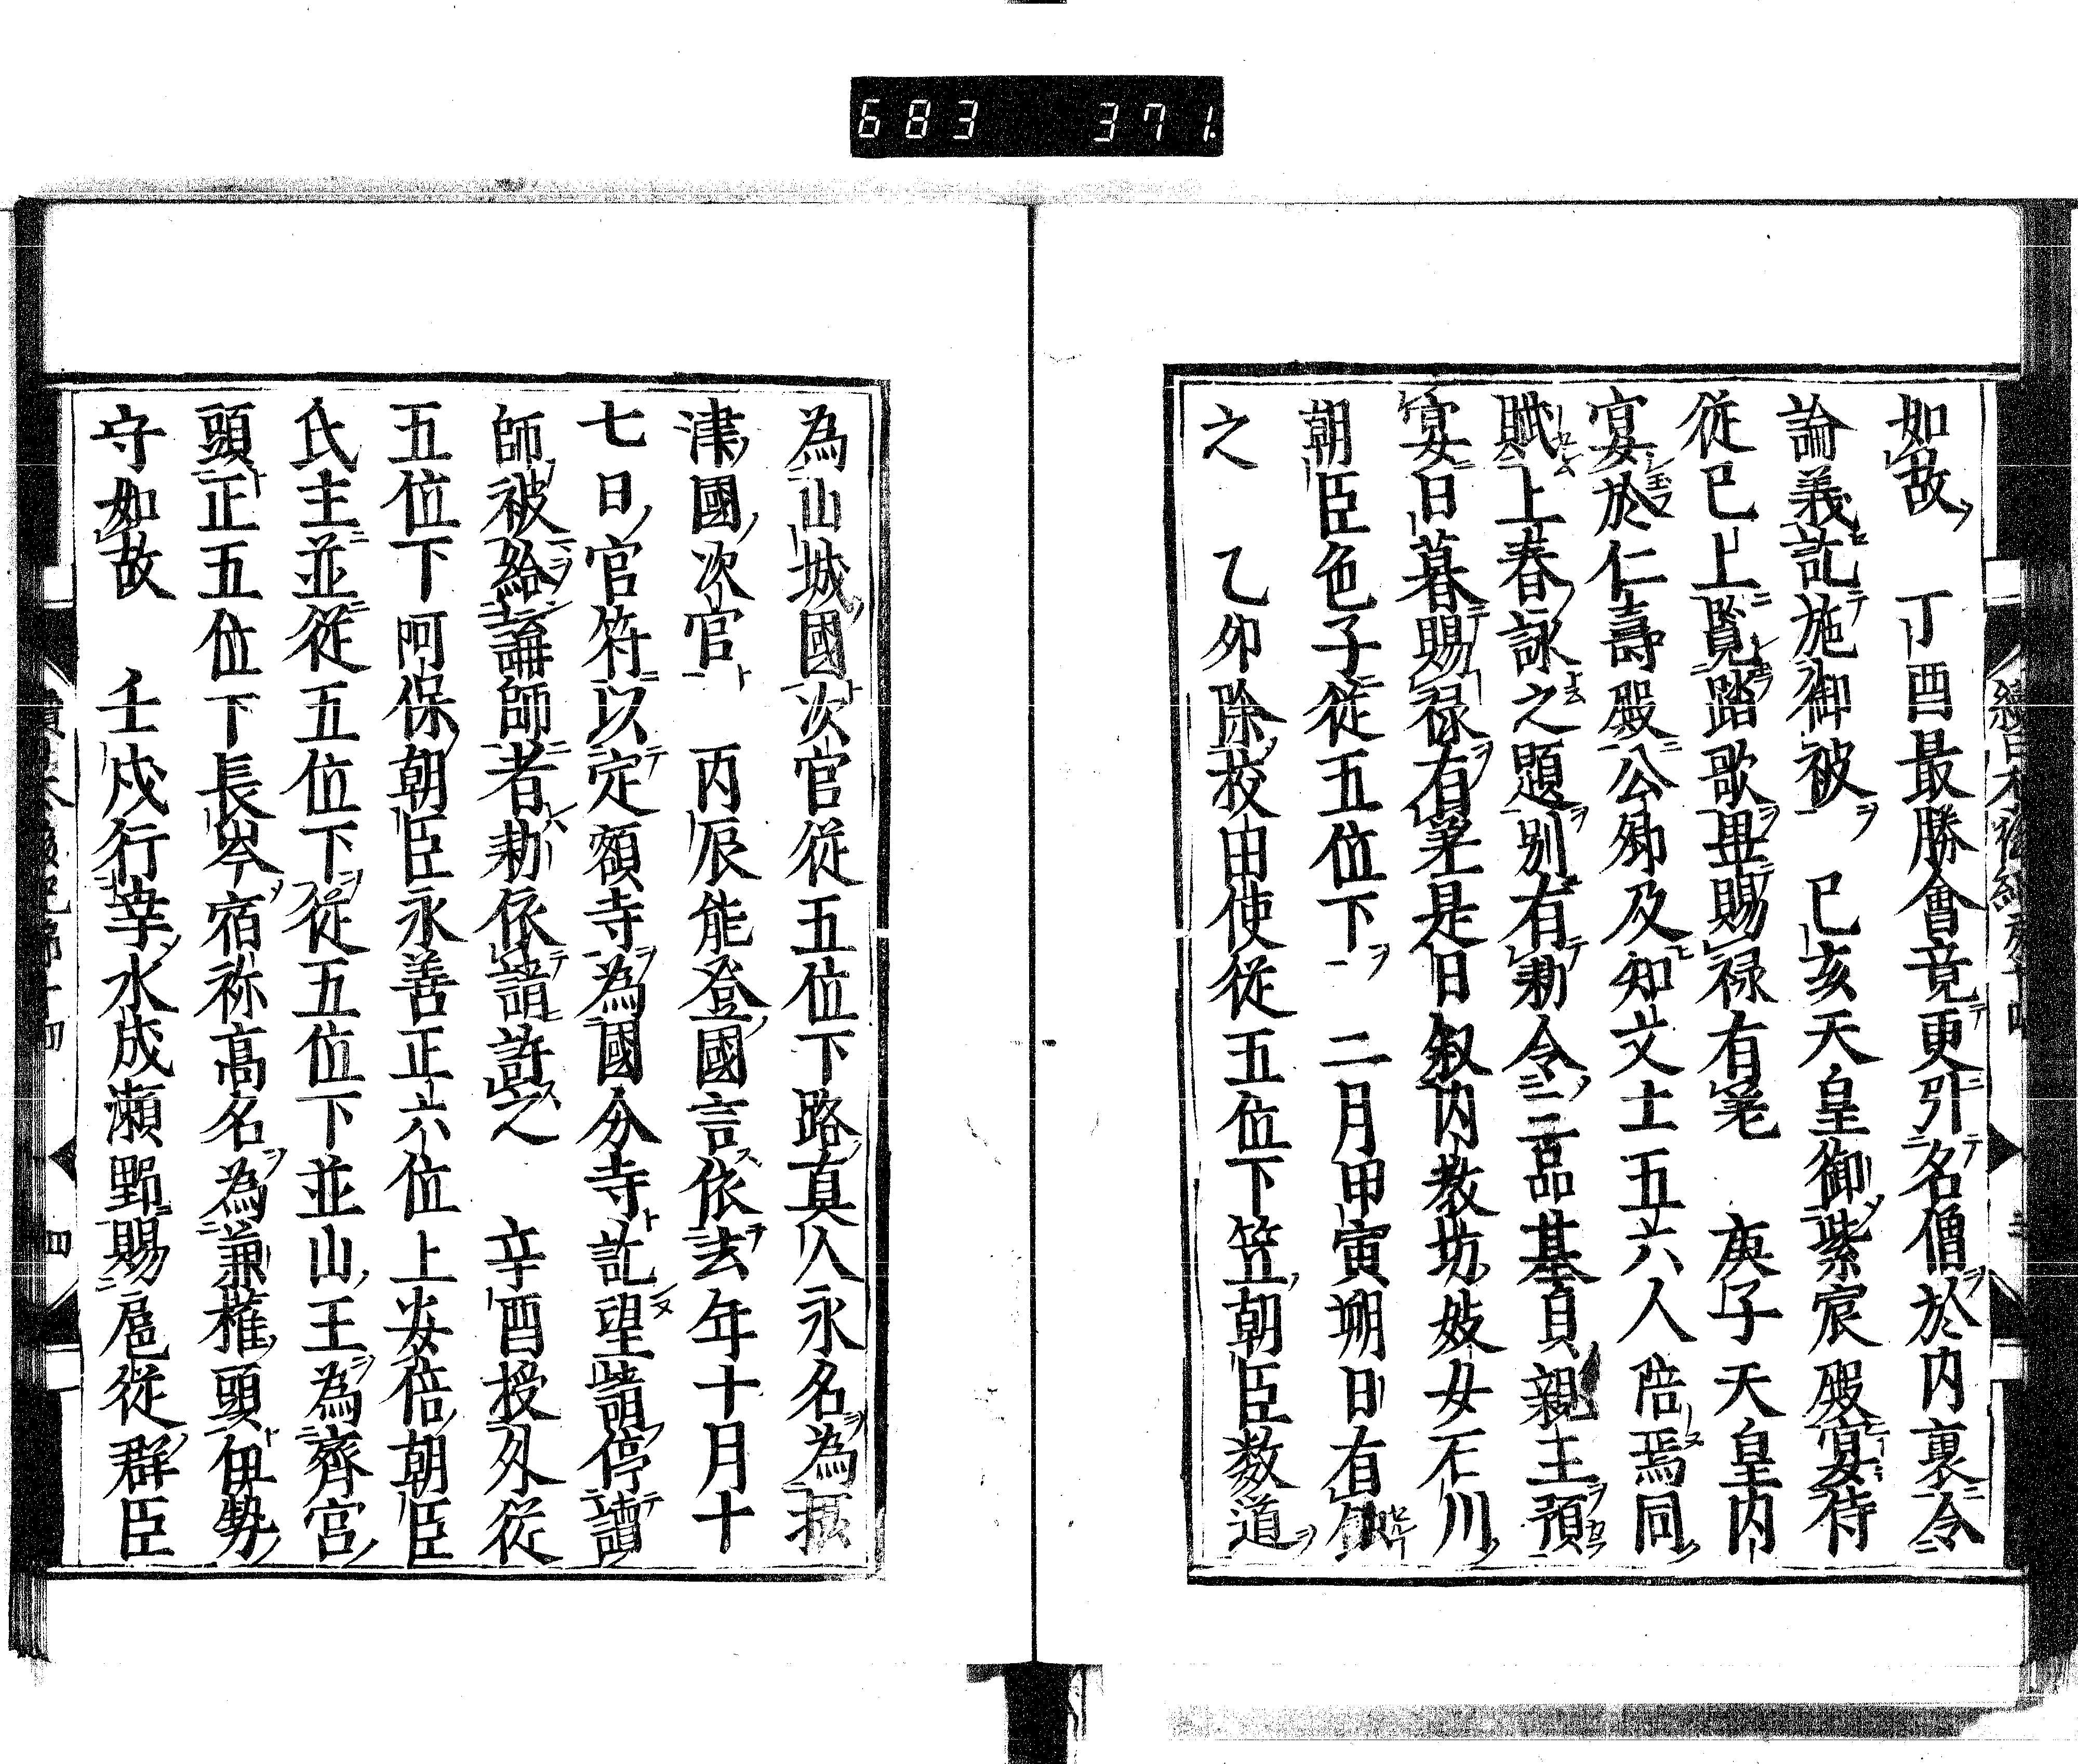 683 371
如故　丁酉最勝會竟更引名僧於内裏令
論義訖施御被　己亥天皇御紫宸殿宴侍
從已上覧踏歌畢賜禄有差　庚子天皇内
宴於仁壽殿公卿及知文士五六人陪焉同
賦上春詠之題別有勅令三品基貞親王預
宴日暮賜禄有差是日叙内教坊妓女石川
朝臣色子從五位下　二月甲寅朔日有蝕
之　乙卯除校田使從五位下笠朝臣数道
為山城國次官從五位下路真人永名為摂
津國次官　丙辰能登國言依去年十月十
七日官符以定額寺為國分寺訖望請停讀
師被給講師者勅依請許之　辛酉授外從
五位下阿保朝臣永善正六位上安倍朝臣
氏主並從五位下從五位下並山王為齊宮
頭正五位下長岑宿祢高名為兼権頭伊勢
守如故　壬戌行幸水成瀬野賜扈從群臣
四